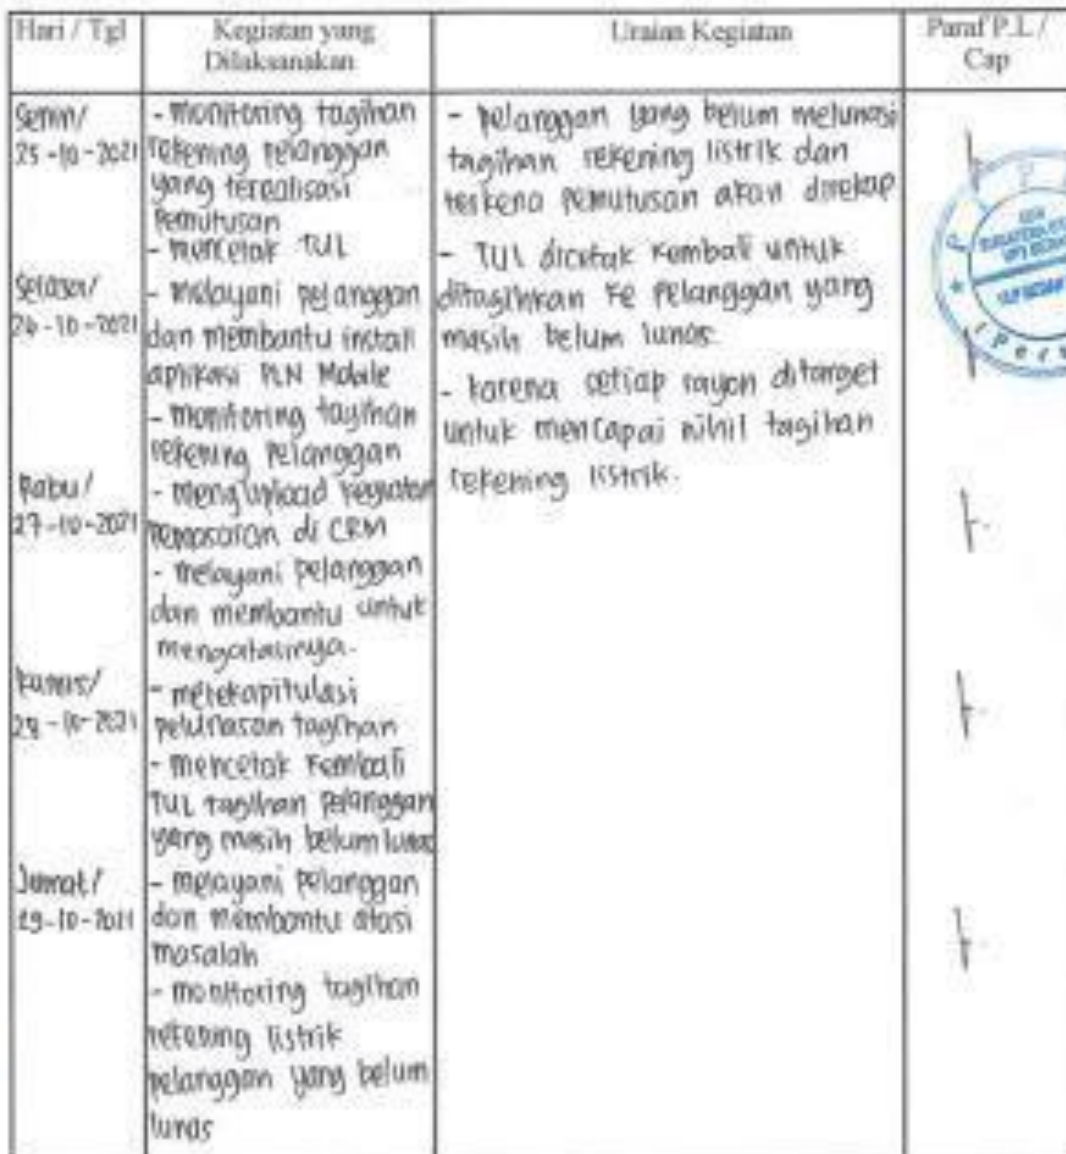 Hari / Tgl
Kegiatan yang
Dilaksanakan
Uraian Kegiatan
Paraf P.L /
Cap
Senin/
25-10-2021
- monitoring tagihan
rekening pelanggan
yang terealisasi
pemutusan
- mencetak TUL
- pelanggan yang belum melunasi
tagihan rekening listrik dan
terkena pemutusan akan direkap
- TUL dicetak kembali untuk
ditagihkan ke pelanggan yang
masih belum lunas.
- karena setiap rayon ditarget
untuk mencapai nihil tagihan
rekening listrik.
Selasa/
26-10-2021
- melayani pelanggan
dan membantu install
aplikasi PLN Mobile
- monitoring tagihan
rekening pelanggan
Rabu/
27-10-2021
- mengupload kegiatan
pemasaran di CRM
- melayani pelanggan
dan membantu untuk
mengatasinya.
Kamis/
28-10-2021
- merekapitulasi
pelunasan tagihan
- mencetak kembali
TUL tagihan pelanggan
yang masih belum lunas
Jumat/
29-10-2021
- melayani pelanggan
dan membantu atasi
masalah
- monitoring tagihan
rekening listrik
pelanggan yang belum
lunas